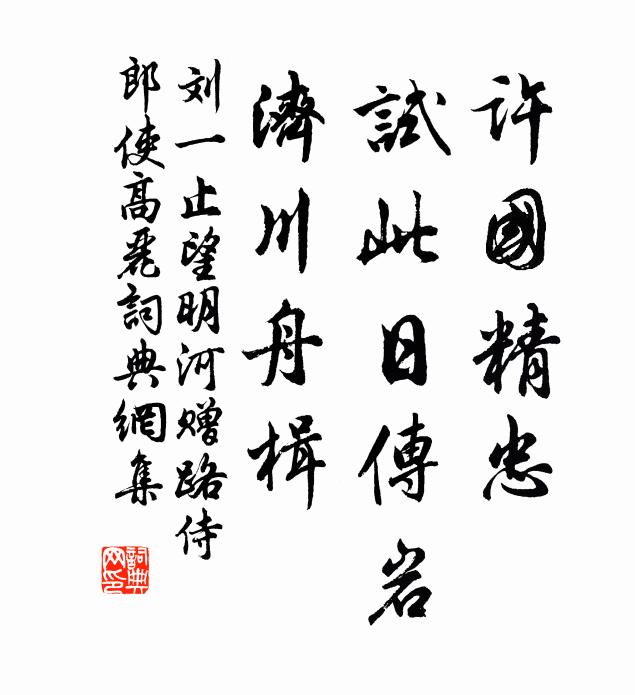 许國精忠
試此日傅岩
濟川舟楫
刘一止望明河赠路侍
郎使高麗詞典網集
詞典网印